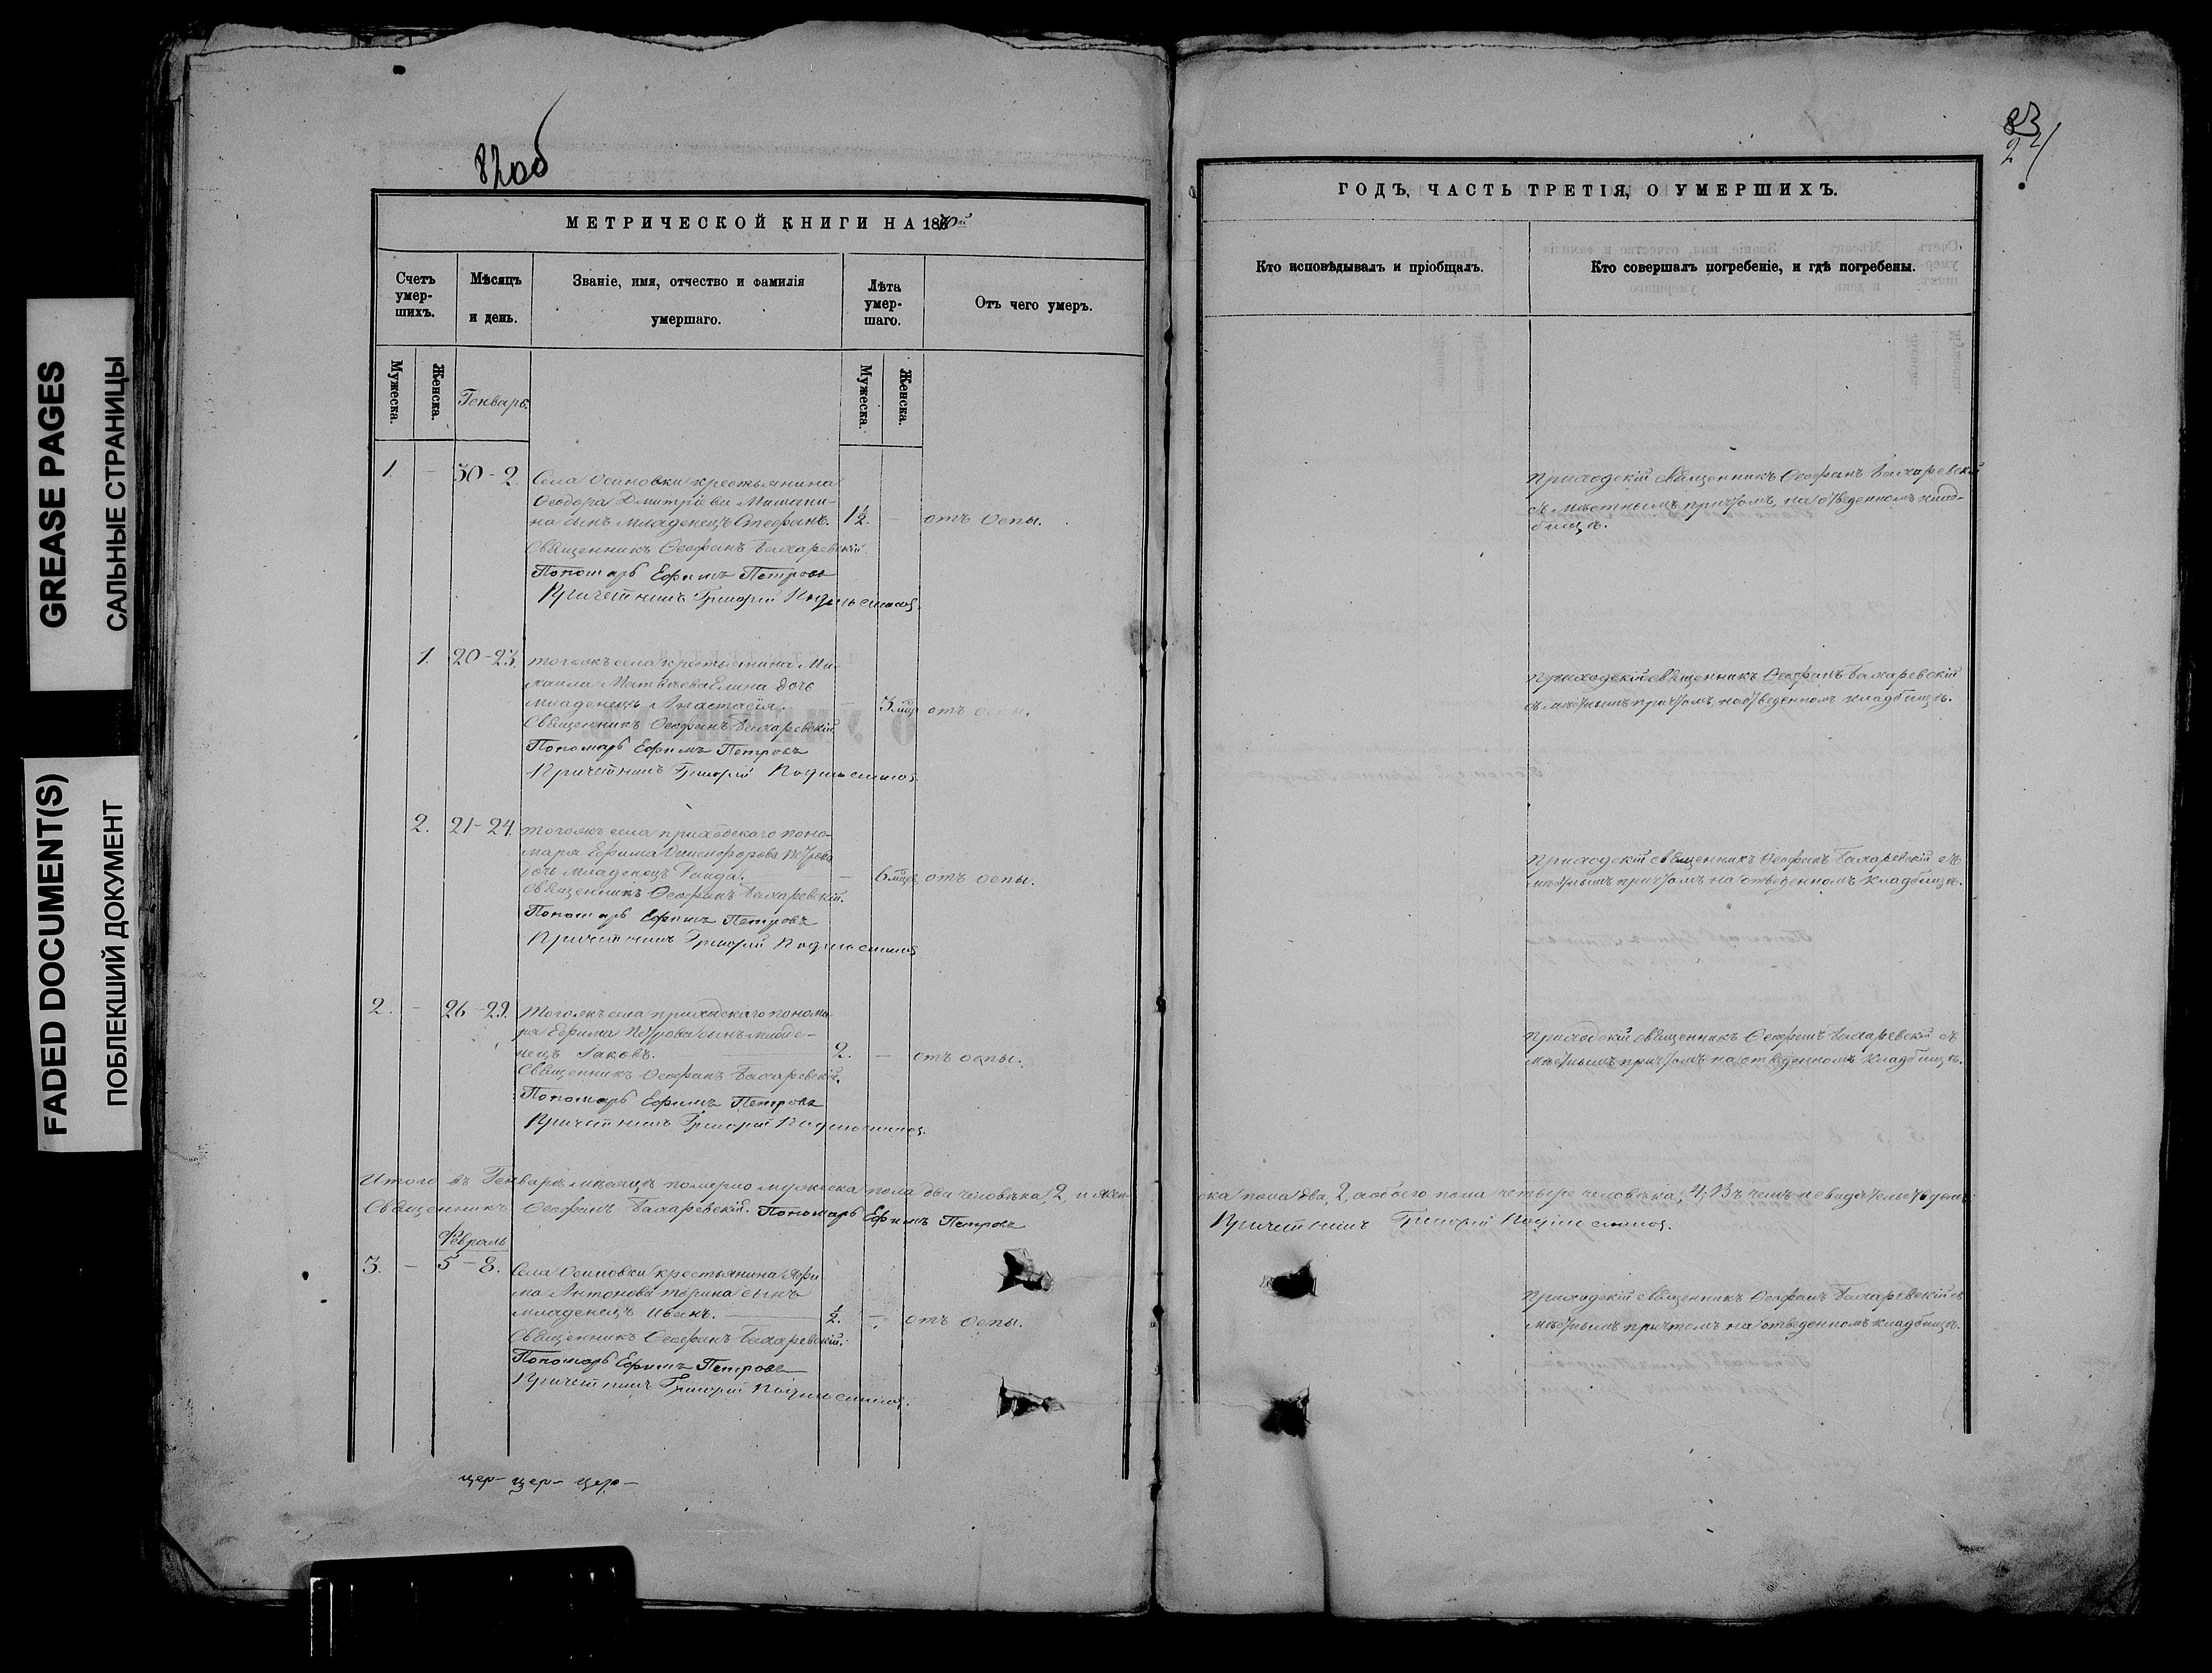 GREASE PAGES
САЛЬНЫЕ СТРАНИЦЫ
FADED DOCUMENT(S)
ПОБЛЕКШИЙ ДОКУМЕНТ
82об
МЕТРИЧЕСКОЙ КНИГИ НА 1870й
Счетъ умер-шихъ.
Мѣсяцъ и день.
Званіе, имя, отчество и фамилія умершаго.
Лѣта умер-шаго.
Отъ чего умеръ.
Мужеска.
Женска.
Генварь.
Мужеска.
Женска.
1. - 30-2. Села Осиновки крестьянина
Ѳеодора Дмитріева
на сынъ младенецъ Стефанъ. 1½. - отъ оспы.
Священникъ Ѳеофанъ Бахаревскій.
Пономарь Ефимъ Петровъ
Причетникъ Григорій
1. 20-23. тогожъ села крестьянина Ми-
хаила Матвѣева Елина дочь
младенецъ Анастасія. - 3 мѣс. отъ оспы.
Священникъ Ѳеофанъ Бахаревскій
Пономарь Ефимъ Петровъ
Причетникъ Григорій
2. 21-24. тогожъ села приходскаго поно-
маря Ефима Онисифорова Петрова
дочь младенецъ Раида. - 6 мѣсяц. отъ оспы.
Священникъ Ѳеофанъ Бахаревскій.
Пономарь Ефимъ Петровъ
Причетникъ Григорій
2. - 26-29. Тогожъ села приходскаго понома-
ря Ефима Петрова сынъ младе-
нецъ Іаковъ. 2. - отъ оспы.
Священникъ Ѳеофанъ Бахаревскій.
Пономарь Ефимъ Петровъ
Причетникъ Григорій
Итого въ Генварѣ мѣсяцѣ померло мужеска пола два человѣка, 2, и жен-
Священникъ Ѳеофанъ Бахаревскій. Пономарь Ефимъ Петровъ
Февраль
3. - 5-8. Села Осиновки крестьянина
Антонова сынъ
младенецъ Иванъ. ½. - отъ оспы.
Священникъ Ѳеофанъ Бахаревскій.
Пономарь Ефимъ Петровъ
Причетникъ Григорій
цер- цер- цер-
83
24
ГОДЪ, ЧАСТЬ ТРЕТІЯ, О УМЕРШИХЪ.
Кто исповѣдывалъ и пріобщалъ.
Кто совершалъ погребеніе, и гдѣ погребены.
Приходскій священникъ Ѳеофанъ Бахаревскій
съ мѣстнымъ причтомъ, на отведенномъ клад-
бищѣ.
Приходскій священникъ Ѳеофанъ Бахаревскій
съ мѣстнымъ причтомъ, на отведенномъ кладбищѣ.
Приходскій священникъ Ѳеофанъ Бахаревскій съ
мѣстнымъ причтомъ на отведенномъ кладбищѣ.
Приходскій священникъ Ѳеофанъ Бахаревскій съ
мѣстнымъ причтомъ на отведенномъ кладбищѣ.
ска пола два, 2, а обоего пола четыре человѣка, 4; Въ чемъ и свидѣтельствуемъ:
Причетникъ Григорій
Приходскій священникъ Ѳеофанъ Бахаревскій съ
мѣстнымъ причтомъ на отведенномъ кладбищѣ.